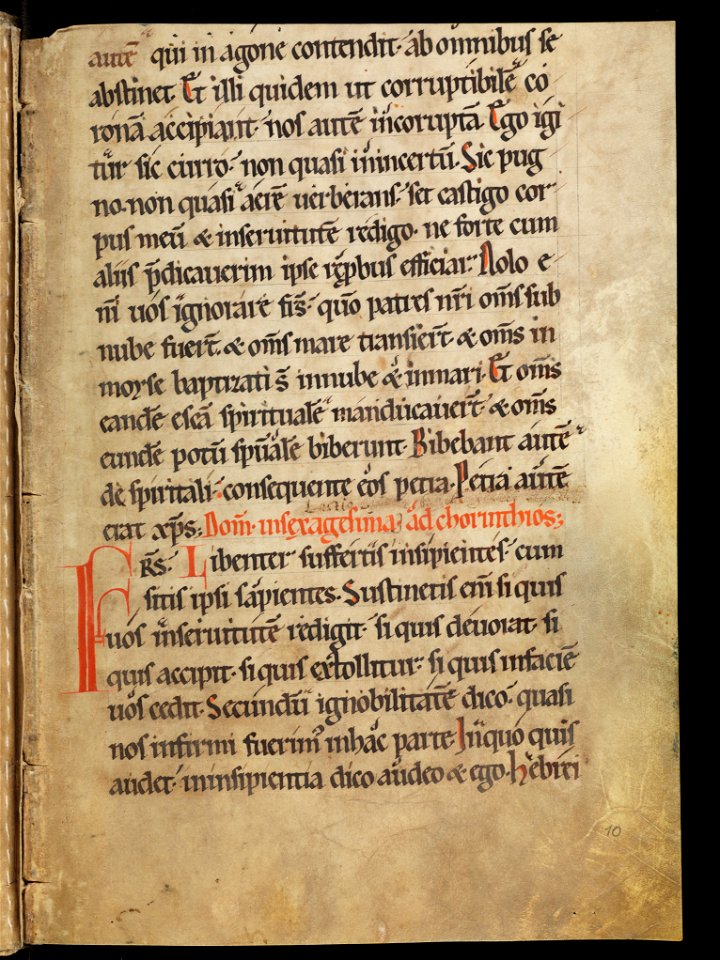 autē qui in agone contendit· ab omnibus se
abstinet· Et illi quidem ut corruptibilē co
ronā accipiant· nos autē incoruptā. Ego igi
tur sic curro· non quasi inincertū. Sic pug
no· non quasi aerē uerberans· set castigo cor
pus meū & inseruitutē redigo· ne forte cum
aliis p̄dicauerim ipse rep̄bus efficiar· Nolo e
nī uos ignorare frs̄· qūo patres nr̄i om̄s sub
nube fuer̄t· & om̄s mare transier̄t· & om̄s in
moyse baptizati s̄ innube & inmari· Et om̄s
eandē escā spiritualē manducauer̄t· & om̄s
eundē potū sp̄ualē biberunt· Bibebant autē
de spiritali· consequente eos petra· Petra autē
erat xp̄s· Dom̄· insexagesima· ad chorinthios;
Frs̄· Libenter suffertis insipientes· cum
sitis ipsi sapientes. Sustinetis enī si quis
uos inseruitutē redigit· si quis deuorat· si
quis accipit· si quis extollitur· si quis infaciē
uos cedit· Secundū ignobilitatē dico· quasi
nos infirmi fuerim᾽ inhac parte· Inquo quis
audet· ininsipientia dico audeo & ego· hebrei
10